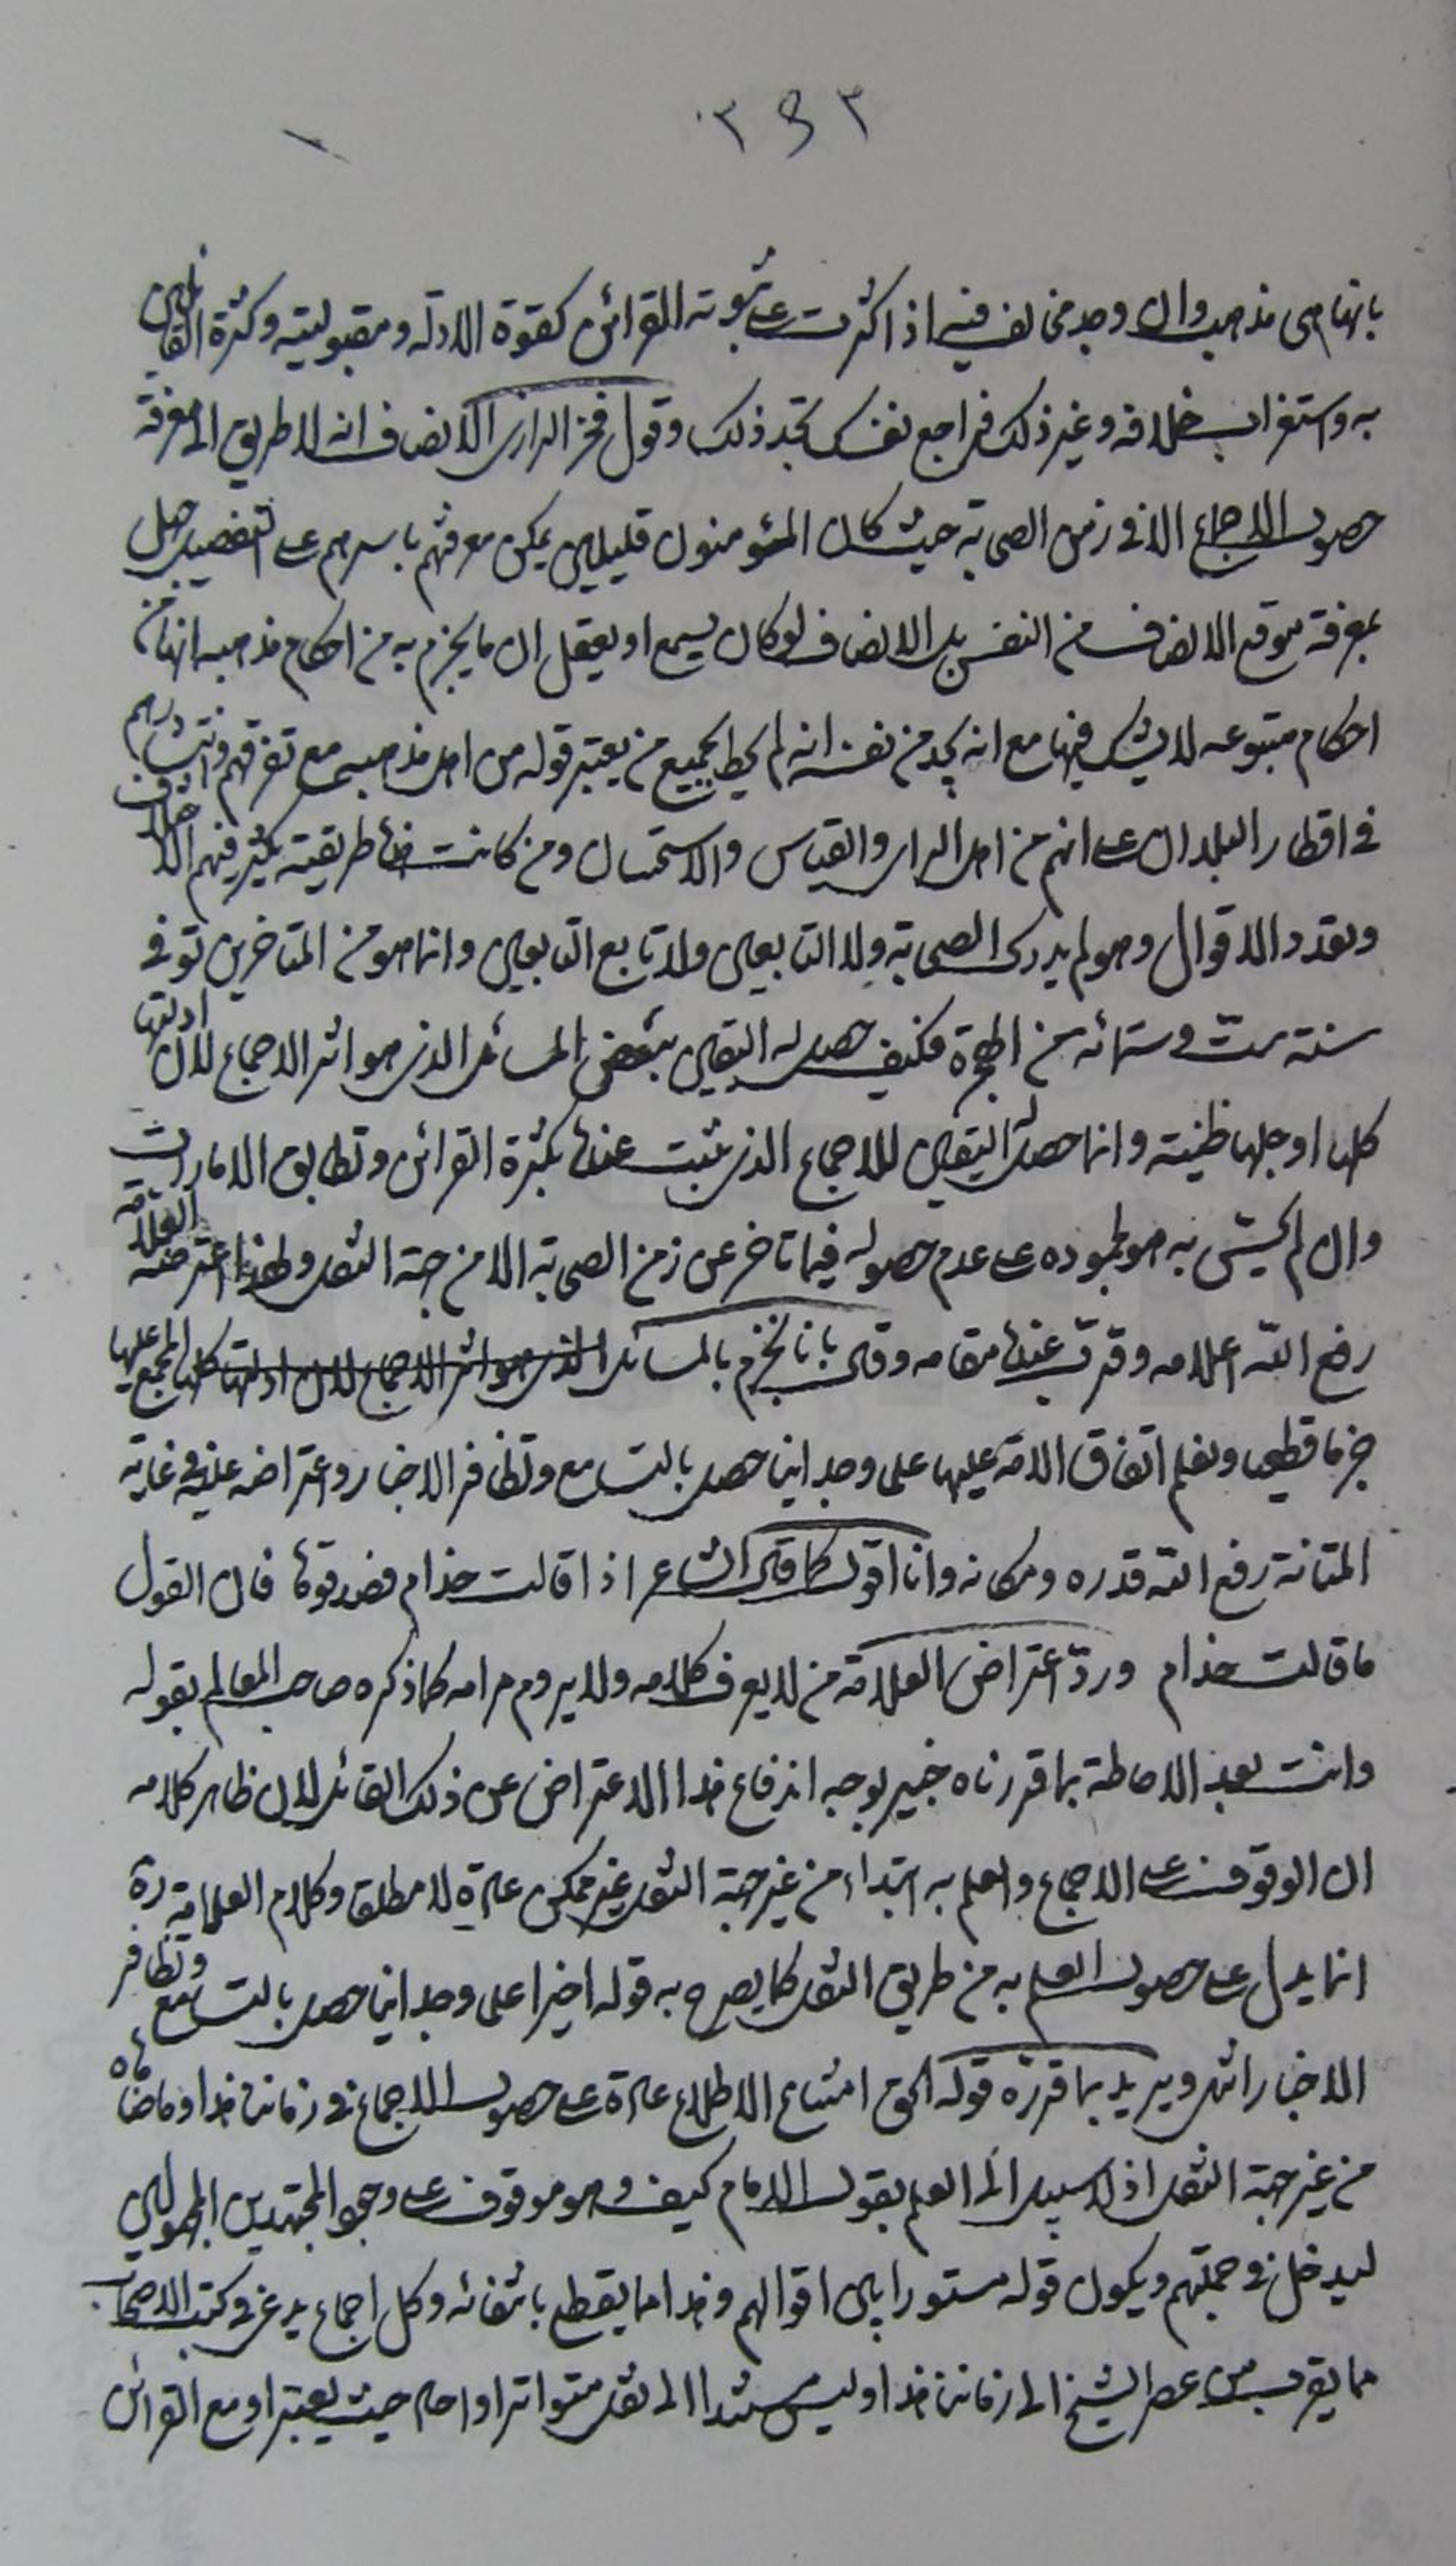 ٣٩٣
بانها من مذهبه وان وجد مخالف فيه اذا كثرت على ثبوته القرائن كقوة الادلة ومقبوليته وكثرة القائلين
به واستغراب خلافه وغير ذلك فراجع نفسك تجد ذلك وقول فخر الرازى الانصاف انه لا طريق الى معرفة
حصول الاجماع الا فى زمن الصحابة حيث كان المؤمنون قليلين يمكن معرفتهم باسرهم على التفصيل
بمعرفة موقع الانصاف من النفس بل الانصاف لو كان يسمع او يعقل ان ما يجزم به من احكام مذهبه انها من
احكام متبوعه لا يشك فيها مع انه يجد من نفسه انه لم يحط بجميع من يعتبر قوله من اهل مذهبه مع تفرقهم وانتشارهم
فى اقطار البلدان على انهم من اهل الراى والقياس والاستحسان ومن كانت هذه طريقته يكثر فيهم الاختلاف
وتعدد الاقوال وهو لم يدرك الصحابة ولا التابعين ولا تابع التابعين وانما هو من المتاخرين توفى
سنة ست وستمائة من الهجرة فكيف حصل له اليقين ببعض المسائل الذى هو اثر الاجماع لان ادلتها
كلها او جلها ظنية وانما حصل له اليقين للاجماع الذى ثبت عنده بكثرة القرائن وتطابق الامارات
وان لم يحتس به هو لجموده على عدم حصوله فيما تاخر عن زمن الصحابة الا من جهة النقل ولهذا اعترضه العلامة
رفع الله اعلامه وقرب عنده مقامه وقال بانا نجزم بالمسائل الذى هو اثر الاجماع لان ادلتها كلها المجمع عليها
جزما قطعيا ونعلم اتفاق الامة عليها علما وجدانيا حصل بالتسامع وتظافر الاخبار واعتراضه عليه فى غاية
المتانة رفع الله قدره ومكانه وانا اقول كما قال الشاعر اذا قالت حذام فصدقوها فان القول
ما قالت حذام ورد اعتراض العلامة من لا يعرف كلامه ولا يروم مرامه كما ذكره صاحب المعالم بقوله
وانت بعد الاحاطة بما قررناه خبير بوجه اندفاع هذا الاعتراض عن ذلك القائل لان ظاهر كلامه
ان الوقوف على الاجماع والعلم به ابتداء من غير جهة النقل غير ممكن عادة لا مطلقا وكلام العلامة ره
انما يدل على حصول العلم به من طريق النقل كما يصرح به قوله اخيرا علما وجدانيا حصل بالتسامع وتظافر
الاخبار انتهى ويريد بما قرره قوله الحق امتناع الاطلاع عادة على حصول الاجماع فى زماننا هذا وما ضاهاه
من غير جهة النقل اذ لا سبيل الى العلم بقول الامام كيف وهو موقوف على وجود المجتهدين المجهولين
ليدخل فى جملتهم ويكون قوله مستورا بين اقوالهم وهذا مما يقطع بانتفائه وكل اجماع يدعى فى كتب الاصحاب
مما يقرب من عصر الشيخ الى زماننا هذا وليس مستندا الى نقل متواتر او احاد حيث يعتبر او مع القرائن